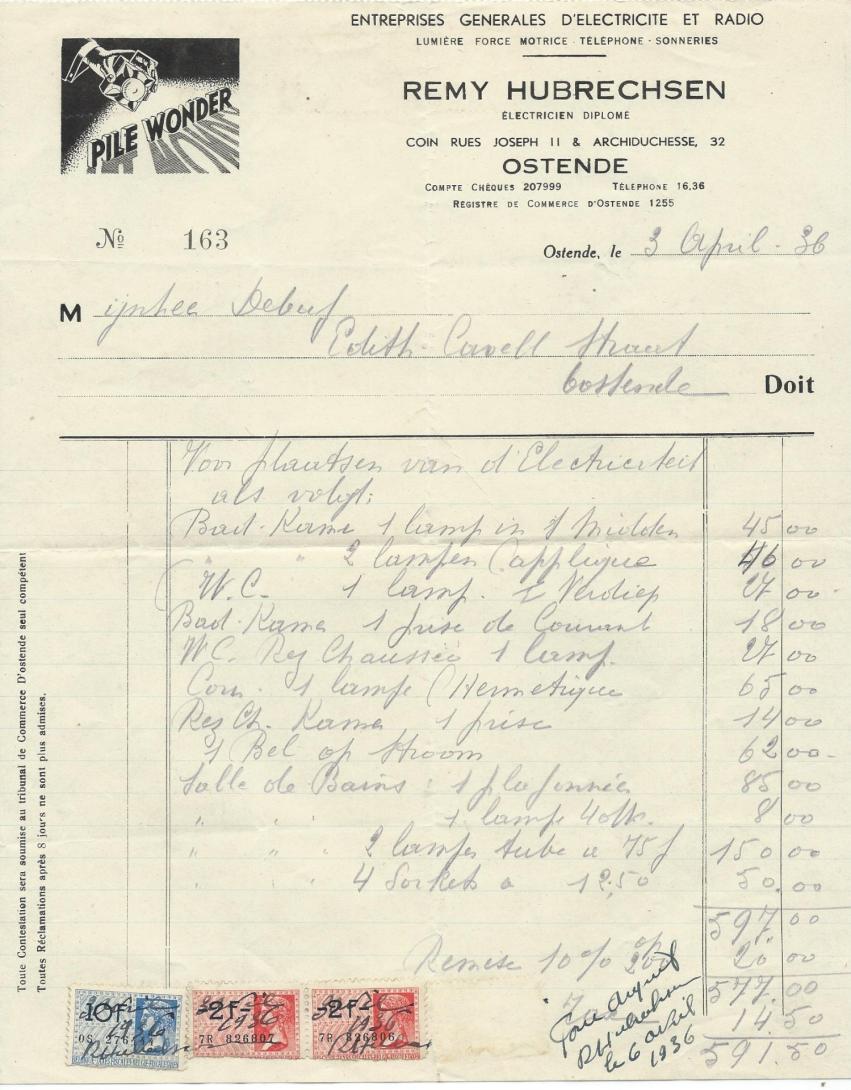 ENTREPRISES GENERALES D'ELECTRICITE ET RADIO
LUMIÈRE FORCE MOTRICE - TÉLÉPHONE - SONNERIES
PILE WONDER
REMY HUBRECHSEN
ÉLECTRICIEN DIPLOMÉ
COIN RUES JOSEPH II & ARCHIDUCHESSE, 32
OSTENDE
COMPTE CHÈQUES 207999 TÉLÉPHONE 16.36
RÉGISTRE DE COMMERCE D'OSTENDE 1255
No 163
Ostende, le 3 April - 36
M ijnhee Debuf
Edith Cavell Straat
Oostende Doit
Voor plaatsen van d'Electricteit
als volgt:
Bad-Kame 1 lamp in 't Midden 45 00
" " 2 lampen (applique 46 00
W.C. 1 lamp. 1 Verdiep 27 00
Bad-Kame 1 prise de Courant 18 00
WC. Rez Chaussée 1 lamp. 27 00
1 lampe (Hermetique 65 00
Rez Ch. Kame 1 prise 14 00
1 Bel op Stroom 62 00
Salle de Bains : 1 plafonnier 85 00
" " " 1 lampe 8 00
" " " 2 lampes tube a 75f 150 00
" " " 4 Sockets a 12,50 50.00
597.00
Remise 10% op 200 20 00
577.00
14.50
591.50
Pour acquit
RHubrechsen
le 6 avril
1936
10F
OS 276
2F
7R 826807
2F
7R 826806
1936
Toute Contestation sera soumise au tribunal de Commerce D'ostende seul compétent
Toutes Réclamations après 8 jours ne sont plus admises.